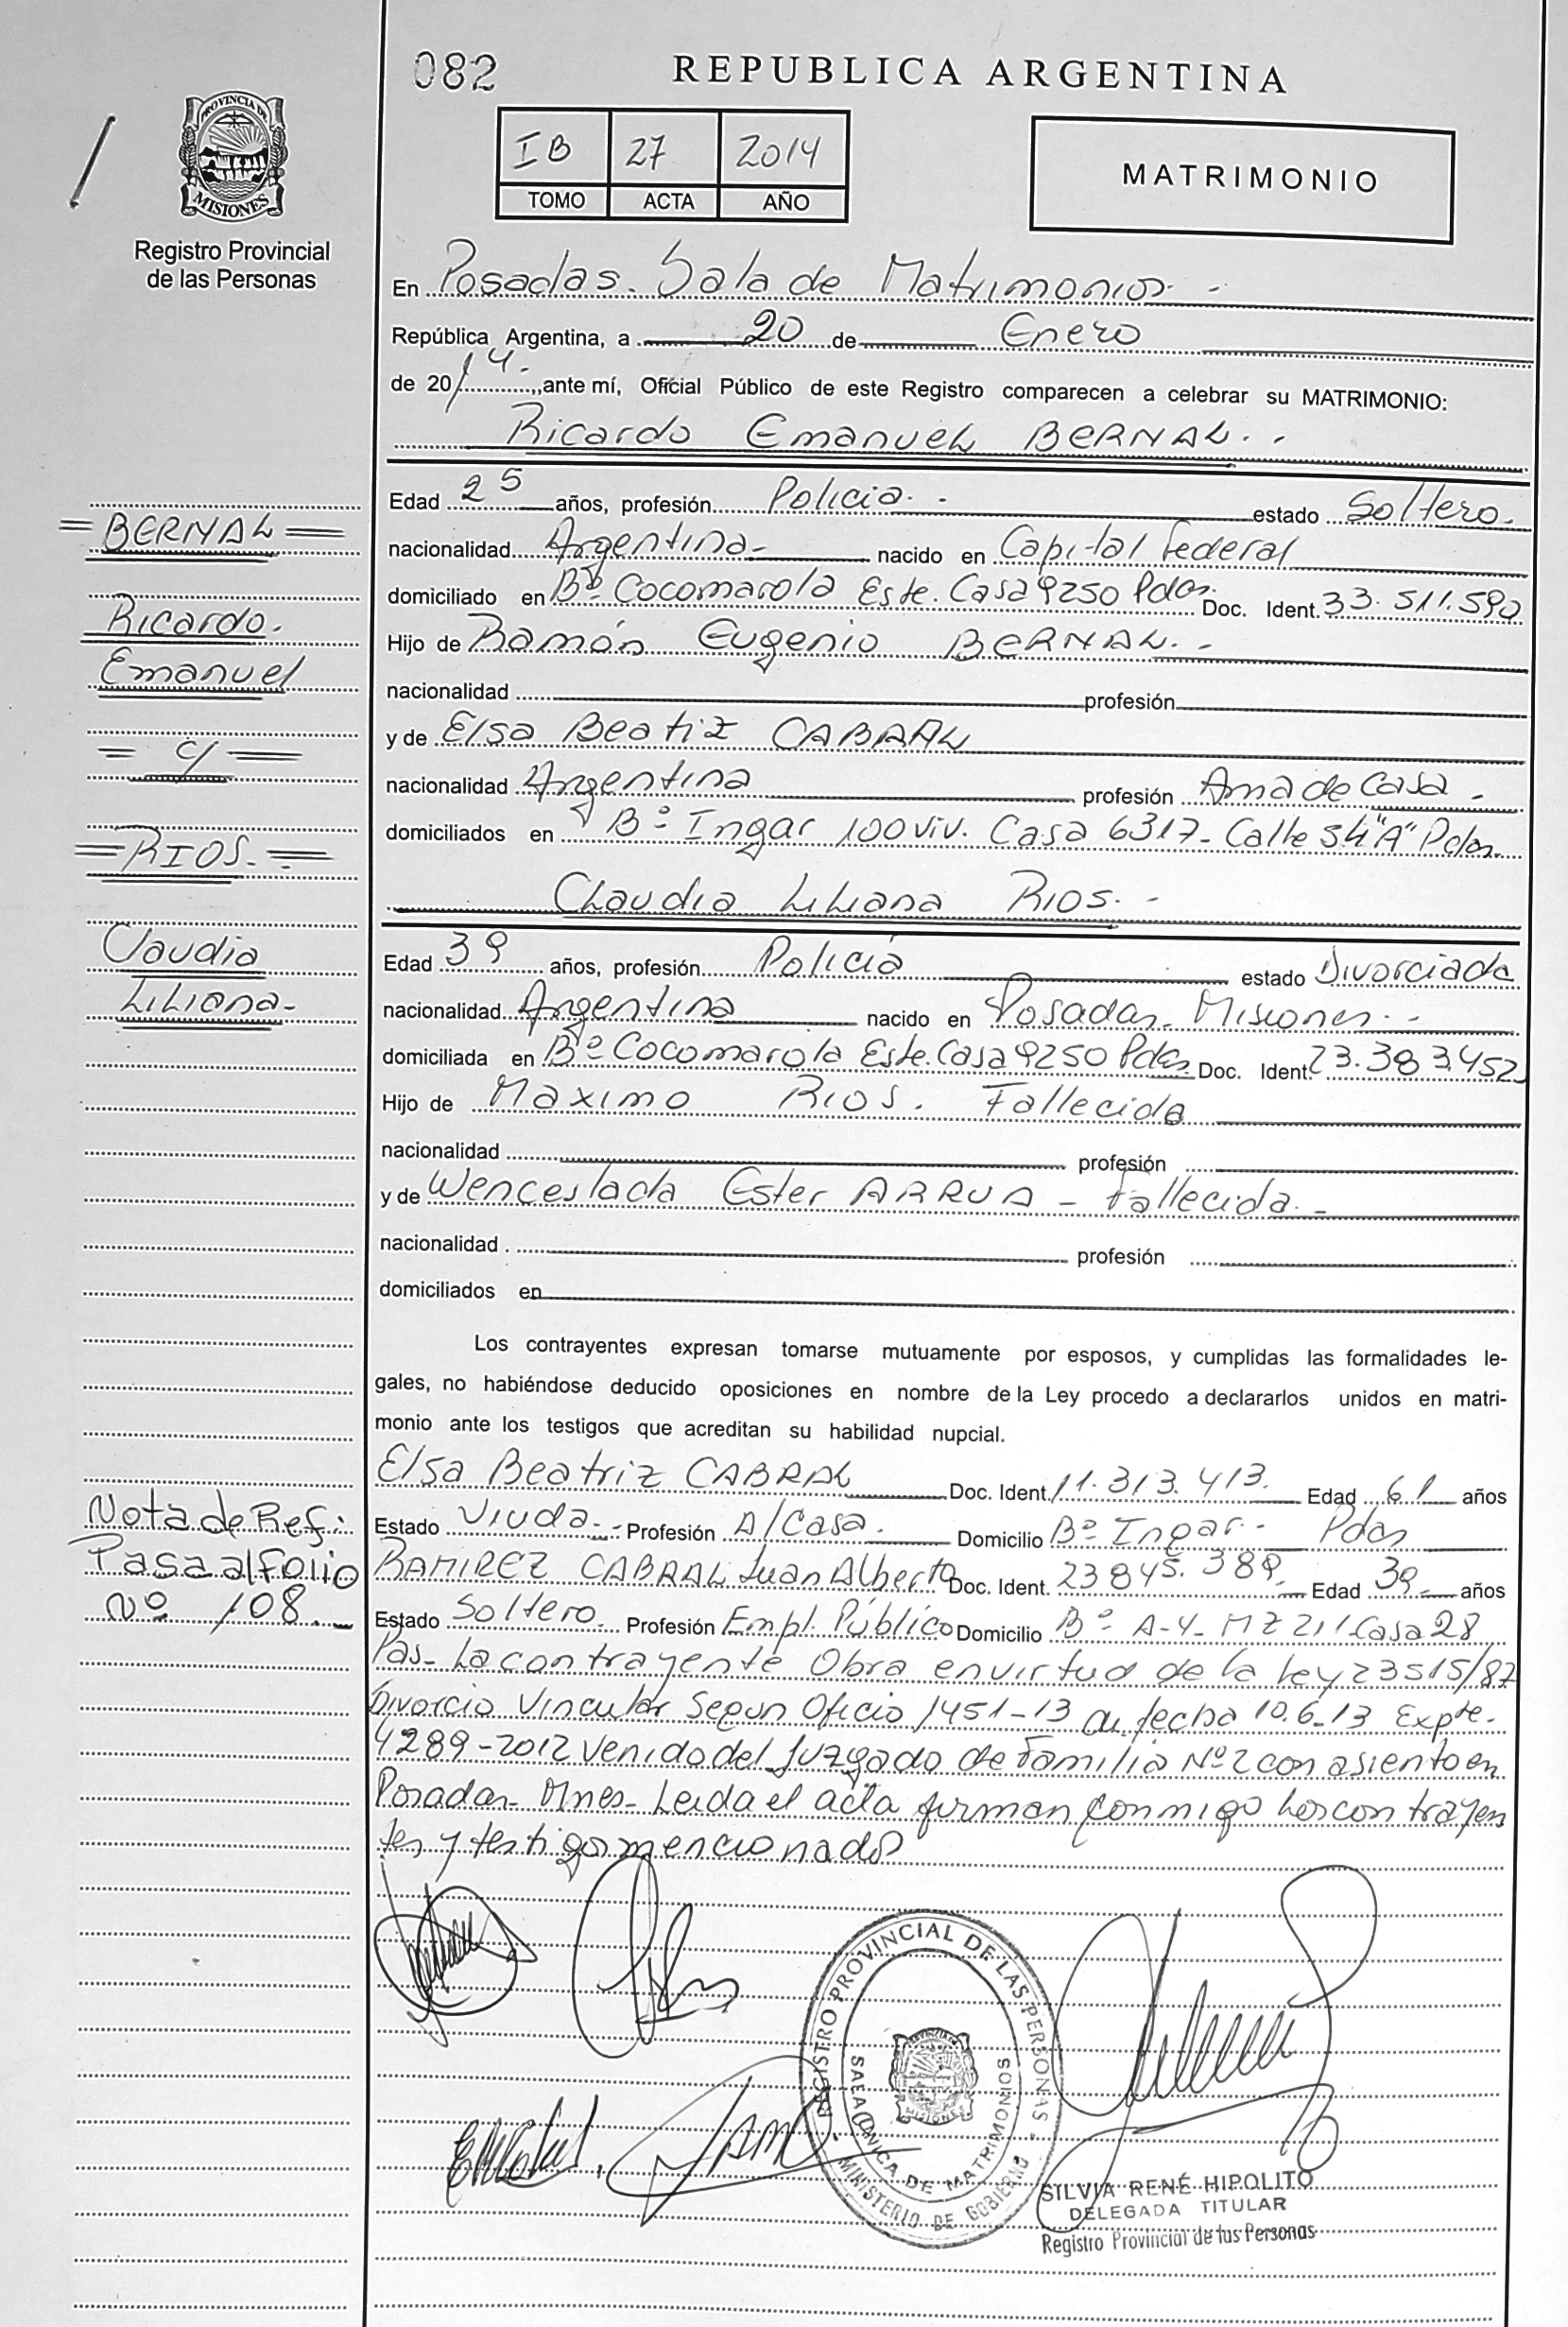 082
REPUBLICA ARGENTINA
PROVINCIA DE
MISIONES
Registro Provincial
de las Personas
IB 27 2014
TOMO ACTA AÑO
MATRIMONIO
En Posadas. Sala de Matrimonios. -
República Argentina, a 20 de Enero
de 20 14. , ante mí, Oficial Público de este Registro comparecen a celebrar su MATRIMONIO:
Ricardo Emanuel BERNAL. -
Edad 25 años, profesión Policia. - estado Soltero.
nacionalidad Argentina- nacido en Capital Federal
domiciliado en Bº Cocomarola Este. Casa 9250 Pdas. Doc. Ident. 33.511.590
Hijo de Ramón Eugenio BERNAL. -
nacionalidad profesión
y de Elsa Beatiz CABRAL
nacionalidad Argentina profesión Ama de Casa -
domiciliados en Bº Ingar 100 viv. Casa 6317- Calle 34"A" Pdas.
Claudia Liliana RIOS. -
Edad 39 años, profesión Policía estado Divorciada
nacionalidad Argentina nacido en Posadas. Misiones. -
domiciliada en Bº Cocomarola Este. Casa 9250 Pdas. Doc. Ident. 23.383.452
Hijo de Maximo RIOS. Fallecido
nacionalidad profesión
y de Wenceslada Ester ARRUA - Fallecida. -
nacionalidad profesión
domiciliados en
Los contrayentes expresan tomarse mutuamente por esposos, y cumplidas las formalidades le-
gales, no habiéndose deducido oposiciones en nombre de la Ley procedo a declararlos unidos en matri-
monio ante los testigos que acreditan su habilidad nupcial.
Elsa Beatriz CABRAL Doc. Ident. 11.313.413. Edad 61 años
Estado Viuda. - Profesión A/Casa. Domicilio Bº Ingar - Pdas
RAMIREZ CABRAL Juan Alberto Doc. Ident. 23845.389. Edad 39 años
Estado Soltero. Profesión Empl. Público Domicilio Bº A-4- MZ 211-Casa 28
Pas- La contrayente Obra en virtud de la Ley 23515/87
Divorcio Vincular Segun Oficio 1451-13 de fecha 10.6-13 Expte.
4289-2012 Venido del Juzgado de Familia Nº 2 con asiento en
Posadas- Mnes- Leida el acta firman conmigo los contrayen
tes y testigos mencionados
BERNAL
Ricardo.
Emanuel
= c/ =
RIOS. -
Claudia
Liliana-
Nota de Ref:
Pasa al Folio
Nº 108. -
REGISTRO PROVINCIAL DE LAS PERSONAS
SALA UNICA DE MATRIMONIOS
MISIONES
MINISTERIO DE GOBIERNO
SILVIA RENÉ HIPOLITO
DELEGADA TITULAR
Registro Provincial de las Personas